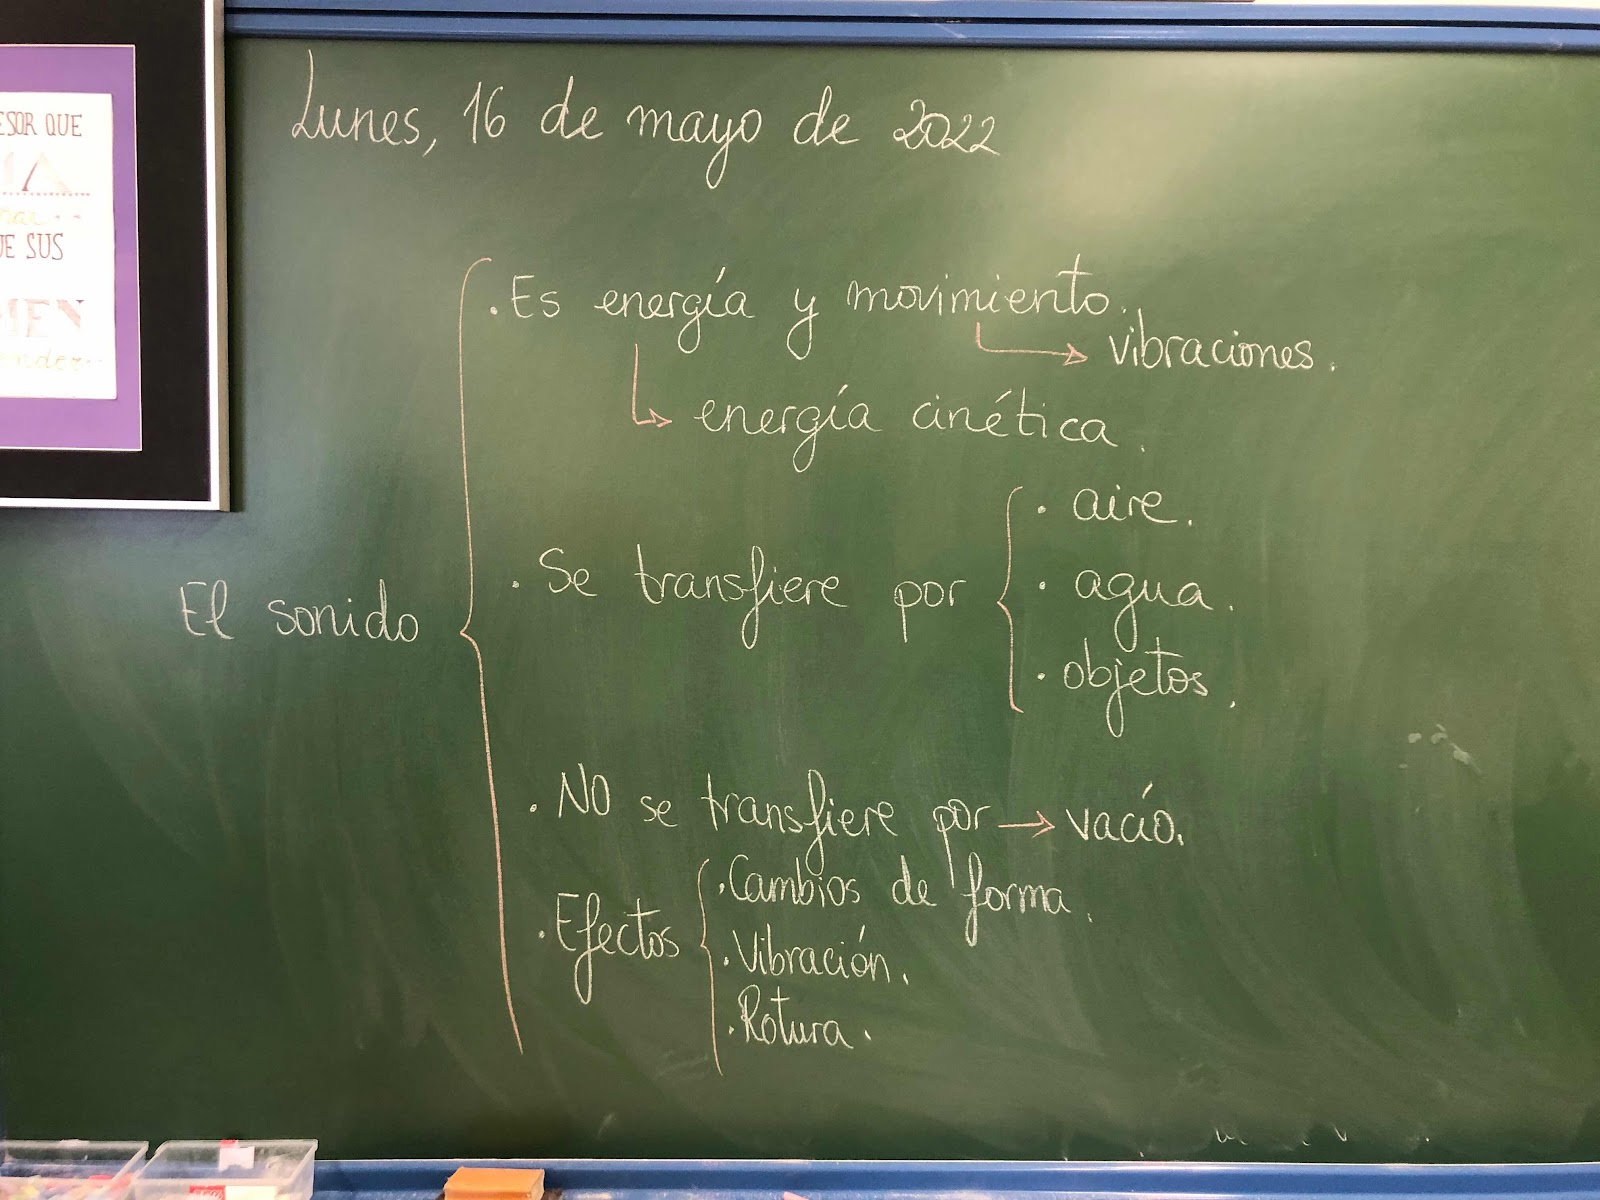 ESOR QUE
UE SUS
MEN
Lunes, 16 de mayo de 2022
El sonido
. Es energía y movimiento.
vibraciones.
energía cinética.
. Se transfiere por
. aire.
. agua.
. objetos.
. NO se transfiere por → vacío.
. Efectos
. Cambios de forma.
. Vibración.
. Rotura.